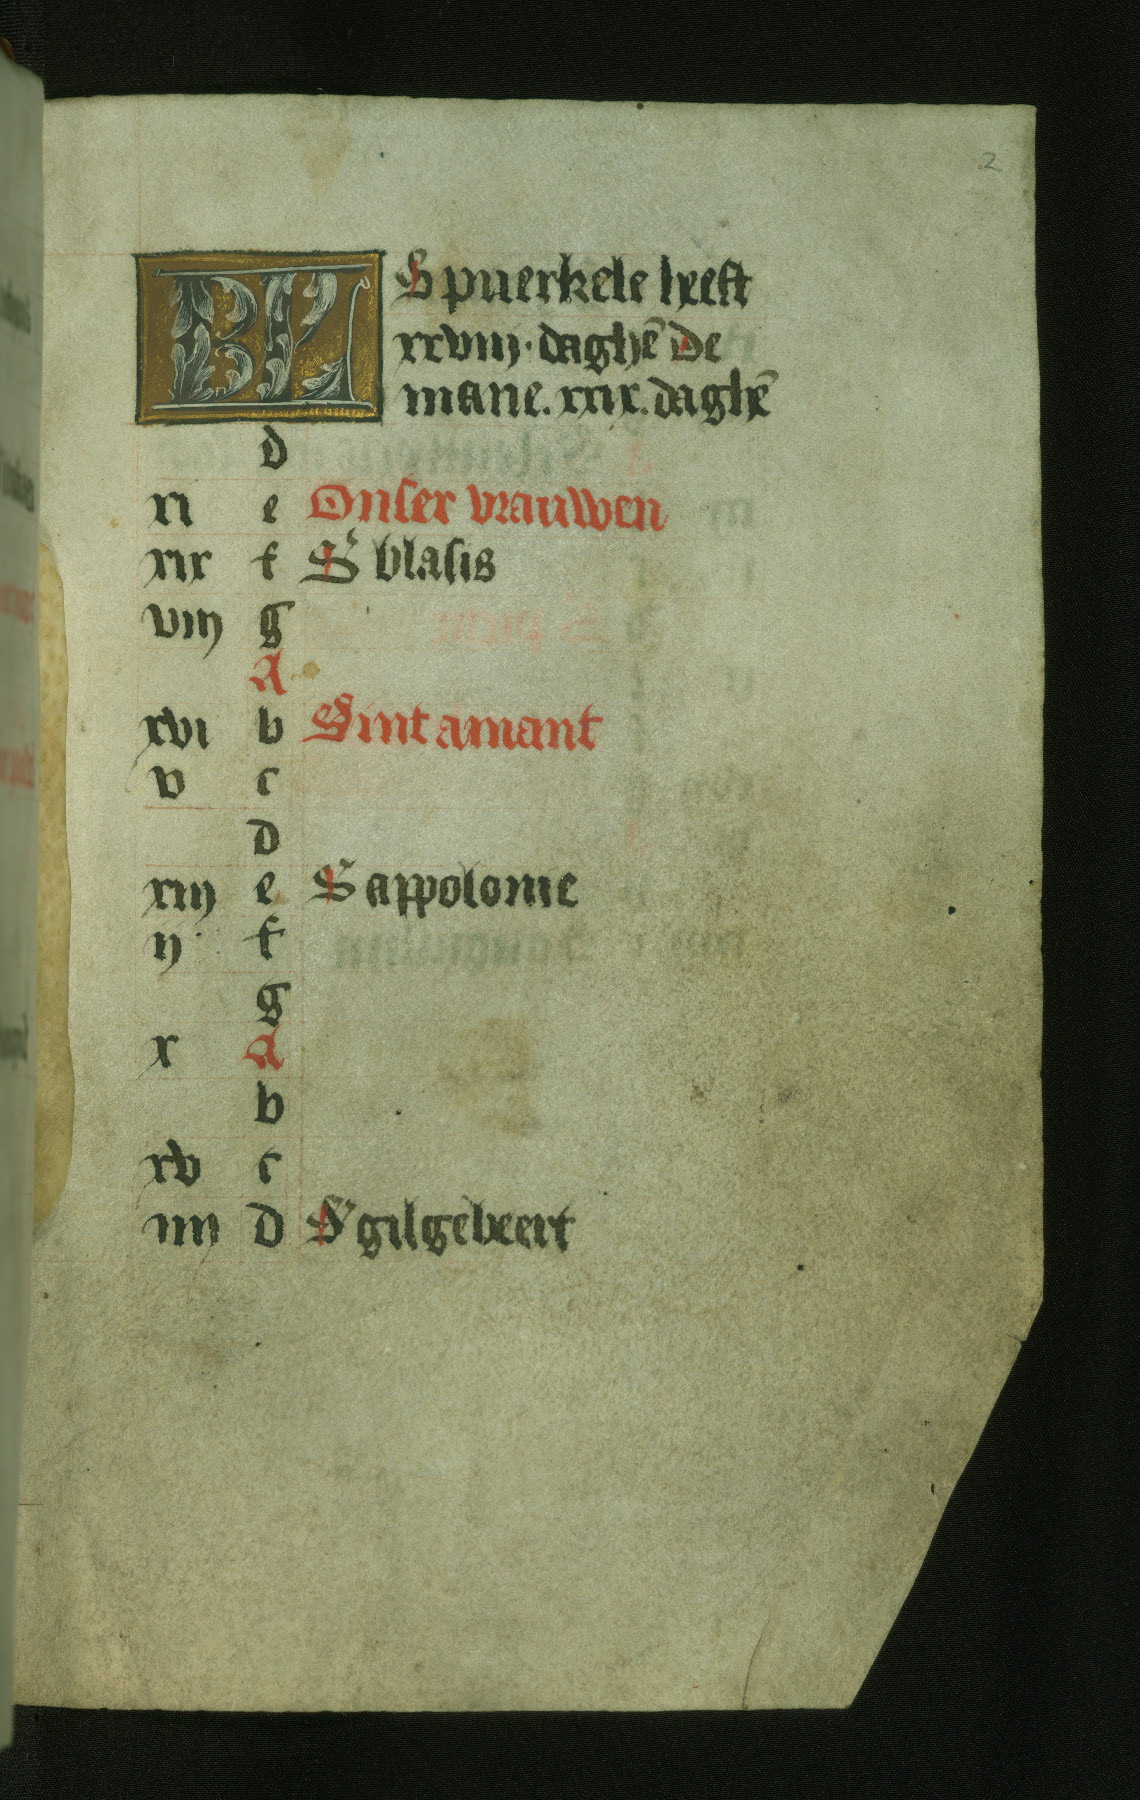 2
KL Spuerkele heeft
xxviij. daghē De
mane. xxix. daghē
d
xi e Onser vrauwen
xix f S blasis
viij g
A
xvi b Sint amant
v c
d
xiij e S appolonie
ij f
g
x A
b
xv c
iiij d S gilgebeert